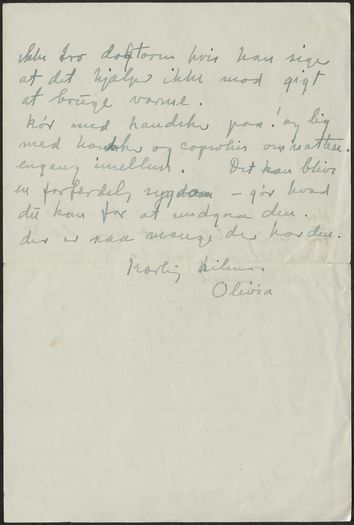 ikke tro doktoren hvis han sige
at det hjælpe ikke mod gigt
at bruge varme.
kör med handske paa! og lig
med handske og om natten.
engang imellem. Det kan blive
en forferdelig sygdom – gör hvad
du kan for at undgaa den.
der er saa mange der har den.
Kærlig hilsen
Olivia